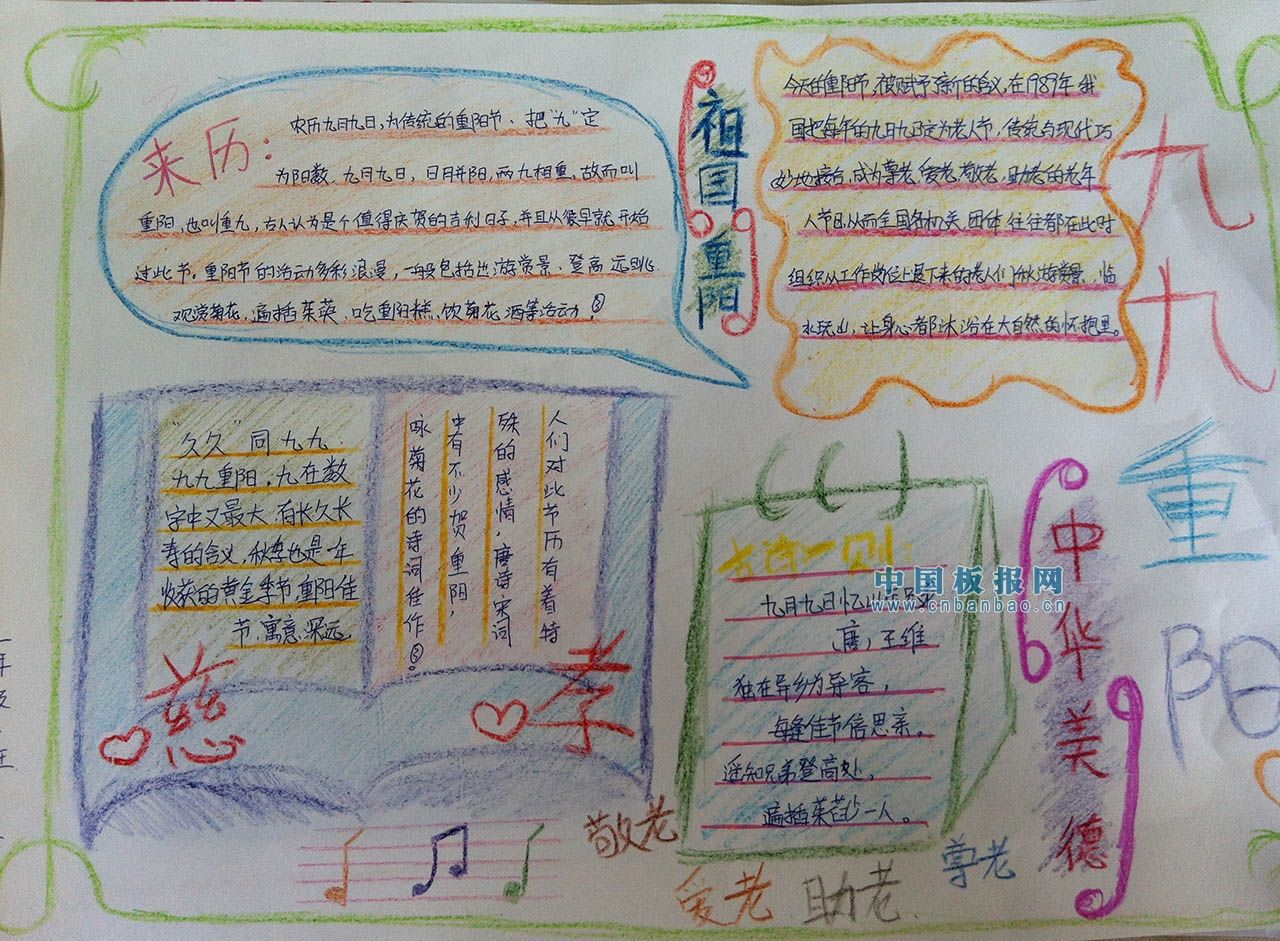 来历:
农历九月九日,为传统的重阳节、把"九"定
为阳数、九月九日,日月并阳,两九相重,故而叫
重阳,也叫重九,古人认为是个值得庆贺的吉利日子,并且从很早就开始
过此节。重阳节的活动多彩浪漫,一般包括出游赏景、登高远眺
观赏菊花、遍插茱萸、吃重阳糕、饮菊花酒等活动。
祖国
重阳
今天的重阳节,被赋予新的含义,在1989年我
国把每年的九月九定为老人节,传统与现代巧
妙地接合,成为尊老,爱老,敬老,助老的老年
人节日从而全国各机关,团体往往都在此时
组织从工作岗位上退下来的老人们秋游赏景,临
水玩山,让身心都沐浴在大自然的怀抱里。
九九重阳
"久久"同九九.
九九重阳,九在数
字中又最大,有长久长
寿的含义,秋季也是一年
收获的黄金季节,重阳佳
节,寓意深远
人们对此节历有着特
殊的感情,唐诗宋词
中有不少贺重阳,
咏菊花的诗词佳作。
慈
孝
古诗一则:
九月九日忆山东兄弟
(唐)王维
独在异乡为异客,
每逢佳节倍思亲。
遥知兄弟登高处,
遍插茱萸少一人。
中国板报网
www.cnbanbao.cn
中华
美德
敬老
爱老
助老
尊老